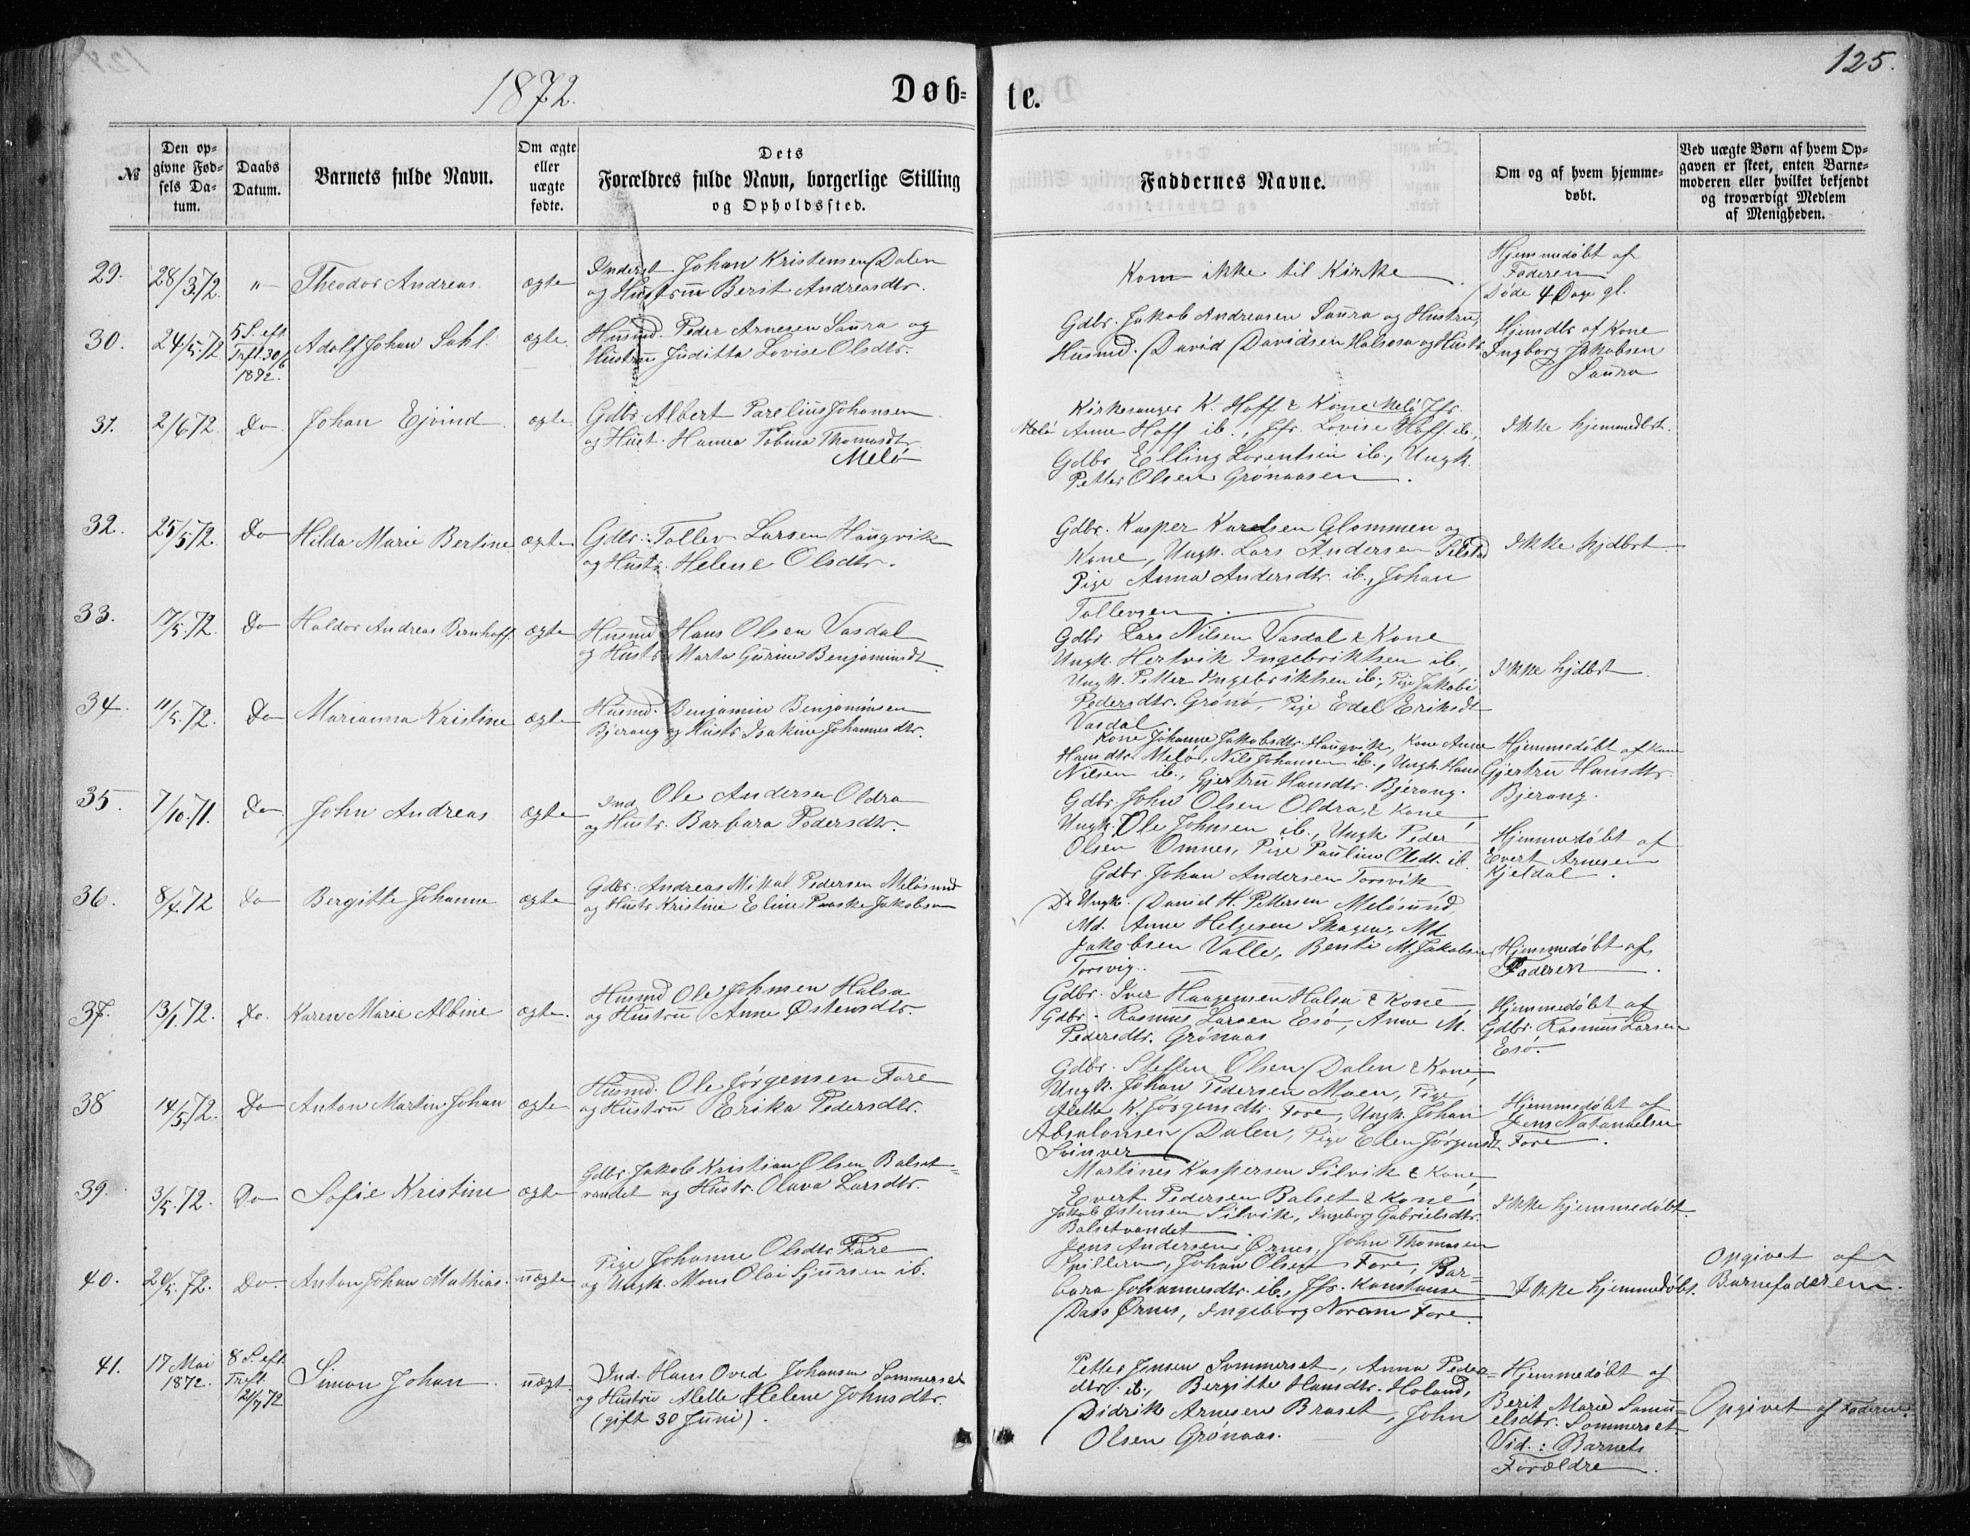 1872.
Døb-
te.
125.
№
Den op-
givne Fød-
sels Da-
tum.
Daabs
Datum.
Barnets fulde Navn.
Om ægte
eller
uægte
fødte.
Dets
Forældres fulde Navn, borgerlige Stilling
og Opholdssted.
Faddernes Navne.
Om og af hvem hjemme-
døbt.
Ved uægte Børn af hvem Op-
gaven er skeet, enten Barne-
moderen eller hvilket bekjendt
og troværdigt Medlem
af Menigheden.
29.
28/3.72.
"
Theodor Andreas.
ægte
Inderst Johan Kristensen Dalen
og Hustru Berit Andreasdtr.
Kom ikke til Kirke
Hjemmedøbt af
Faderen
Døde 4 Dage gl.
30.
24/5.72
5 S. eft.
Trft. 30/6
1872.
Adolf Johan Sahl.
ægte
Husmd. Peder Arnesen Saura og
Hustru Juditta Lovise Olsdtr.
Gdbr. Jakob Andreasen Saura og Hustru,
Husmd. David Davidsen Halsosa og Hustr.
Hjemdbt af Kone
Ingborg Jakobsen
Saura
31.
2/6.72.
Do
Johan Ejvind
ægte
Gdbr. Albert Parelius Johansen
og Hust. Hanna Tobina Thomasdtr.
Melø
Kirkesanger K. Hoff & Kone Melø, Jfr.
Melø Anne Hoff ib., Jfr. Lovise Hoff ib.,
Gdbr. Elling Lorentsen ib., Ungk.
Petter Olsen Grønaasen.
Ikke hjemmedbt.
32.
25/5.72.
Do
Hilda Marie Bertine
ægte
Gdbr. Tollev Larsen Haugvik
og Hustr. Helene Olsdtr.
Gdbr. Kasper Karelsen Glommen og
Kone, Ungk. Lars Andersen Selstad
Pige Anna Andersdtr. ib., Johan
Tollevsen
Ikke hjdbt
33.
17/5.72.
Do
Haldor Andreas Bernhoff
ægte
Husmd Hans Olsen Vasdal
og Hustr. Marta Gurine Benjaminsdt.
Gdbr Lars Nilsen Vasdal & Kone
Ungk. Hertvik Ingebriktsen ib.,
Ungk. Petter Ingebriktsen ib., Pige Jakobi
Pedersdtr. Grønø, Pige Edel Eriksdt
Vasdal
Ikke hjdbt
34.
11/5.72.
Do
Marianna Kristine
ægte
Husmd. Benjamin Benjaminsen
Bjerang og Hustr. Isakine Johannesdtr.
Kone Johanne Jakobsdtr. Haugvik, Kone Anne
Hansdtr. Melø, Nils Johansen ib., Ungk. Hans
Nilsen ib., Gjertru Hansdtr. Bjerang.
Hjemmedøbt af Kone
Gjertru Hansdtr.
Bjerang.
35.
7/10.71.
Do
John Andreas
ægte
Ind. Ole Andersen Oldra
og Hustr. Barbara Pedersdtr.
Gdbr. John Olsen Oldra, & Kone,
Ungk. Ole Johnsen ib., Ungk Peder
Olsen Ømnes, Pige Pauline Olsdt. ib
Hjemmedøbt af
Evert Arnesen
Kjeldal.
36.
8/4.72
Do
Bergitte Johanne
ægte
Gdbr. Andreas Mikal Pedersen Meløsund
og Hustr. Kristine Eline Paaske Jakobsen
Gdbr. Johan Andersen Torsvik
Do Ungk. David H. Pettersen Meløsund,
Md. Anne Helgesen Skagen, Md.
Jakobsen Valle, Bente M. Jakobsen
Torsvig.
Hjemmedøbt af
Faderen
37.
13/1.72.
Do.
Karen Marie Albine
ægte.
Husmd Ole Johnsen Halsa
og Hustru Anne Østensdtr.
Gdbr. Iver Haagensen Halsa & Kone,
Gdbr. Rasmus Larsen Esø, Anne M.
Pedersdtr. Grønaas
Hjemmedøbt af
Gdbr. Rasmus Larsen
Esø.
38
14/5.72.
Do
Anton Martin Johan
ægte
Husmd. Ole Jørgensen Fore
og Hustru Erika Pedersdtr.
Gdbr. Steffen Olsen Dalen & Kone,
Ungk. Johan Pedersen Moen, Pige
Alette K. Jørgensdtr. Fore, Ungk. Johan
Absalonsen Dalen, Pige Elen Jørgensdt.
Svinver
Hjemmedøbt af
Jens Natanaelsen
Fore.
39.
3/5.72.
Do
Sofie Kristine
ægte
Gdbr Jakob Kristian Olsen Balset-
vandet og Hustr. Olava Larsdtr.
Martines Kaspersen Silvik & Kone,
Evert Pedersen Balset & Kone,
Jakob Østensen Silvik, Ingeborg Gabrielsdtr.
Balsetvandet.
Ikke hjemmedøbt.
40.
20/5.72.
Do
Anton Johan Mathias.
uægte
Pige Johanne Olsdtr Fore
og Ungk. Mons Olai Sjursen ib.
Jens Andersen Ørnes, John Thomasen
Spilleren, Johan Olsen Fore, Bar-
bara Johannesdtr. ib., Jfr. Konstanse
Dass Ørnes, Ingeborg Noram Fore.
Ikke hjemmedøbt.
Opgivet af
Barnefaderen
41.
17 Mai
1872.
8 S. eft.
Treft.
21/7 72
Simon Johan
uægt
Ind. Hans Oved Johansen Sommerset
og Hustru Alette Helene Johnsdtr.
(gift 30 Juni).
Petter Jensen Sommerset, Anna Peders-
dtr. ib., Bergitte Hansdtr. Holand,
Didrik Arnesen Braset, John
Olsen Grønaas.
Hjemmedøbt af
Berit Marie Samu-
elsdtr. Sommerset
Vid.: Barnets
Forældre
Opgivet af Faderen.